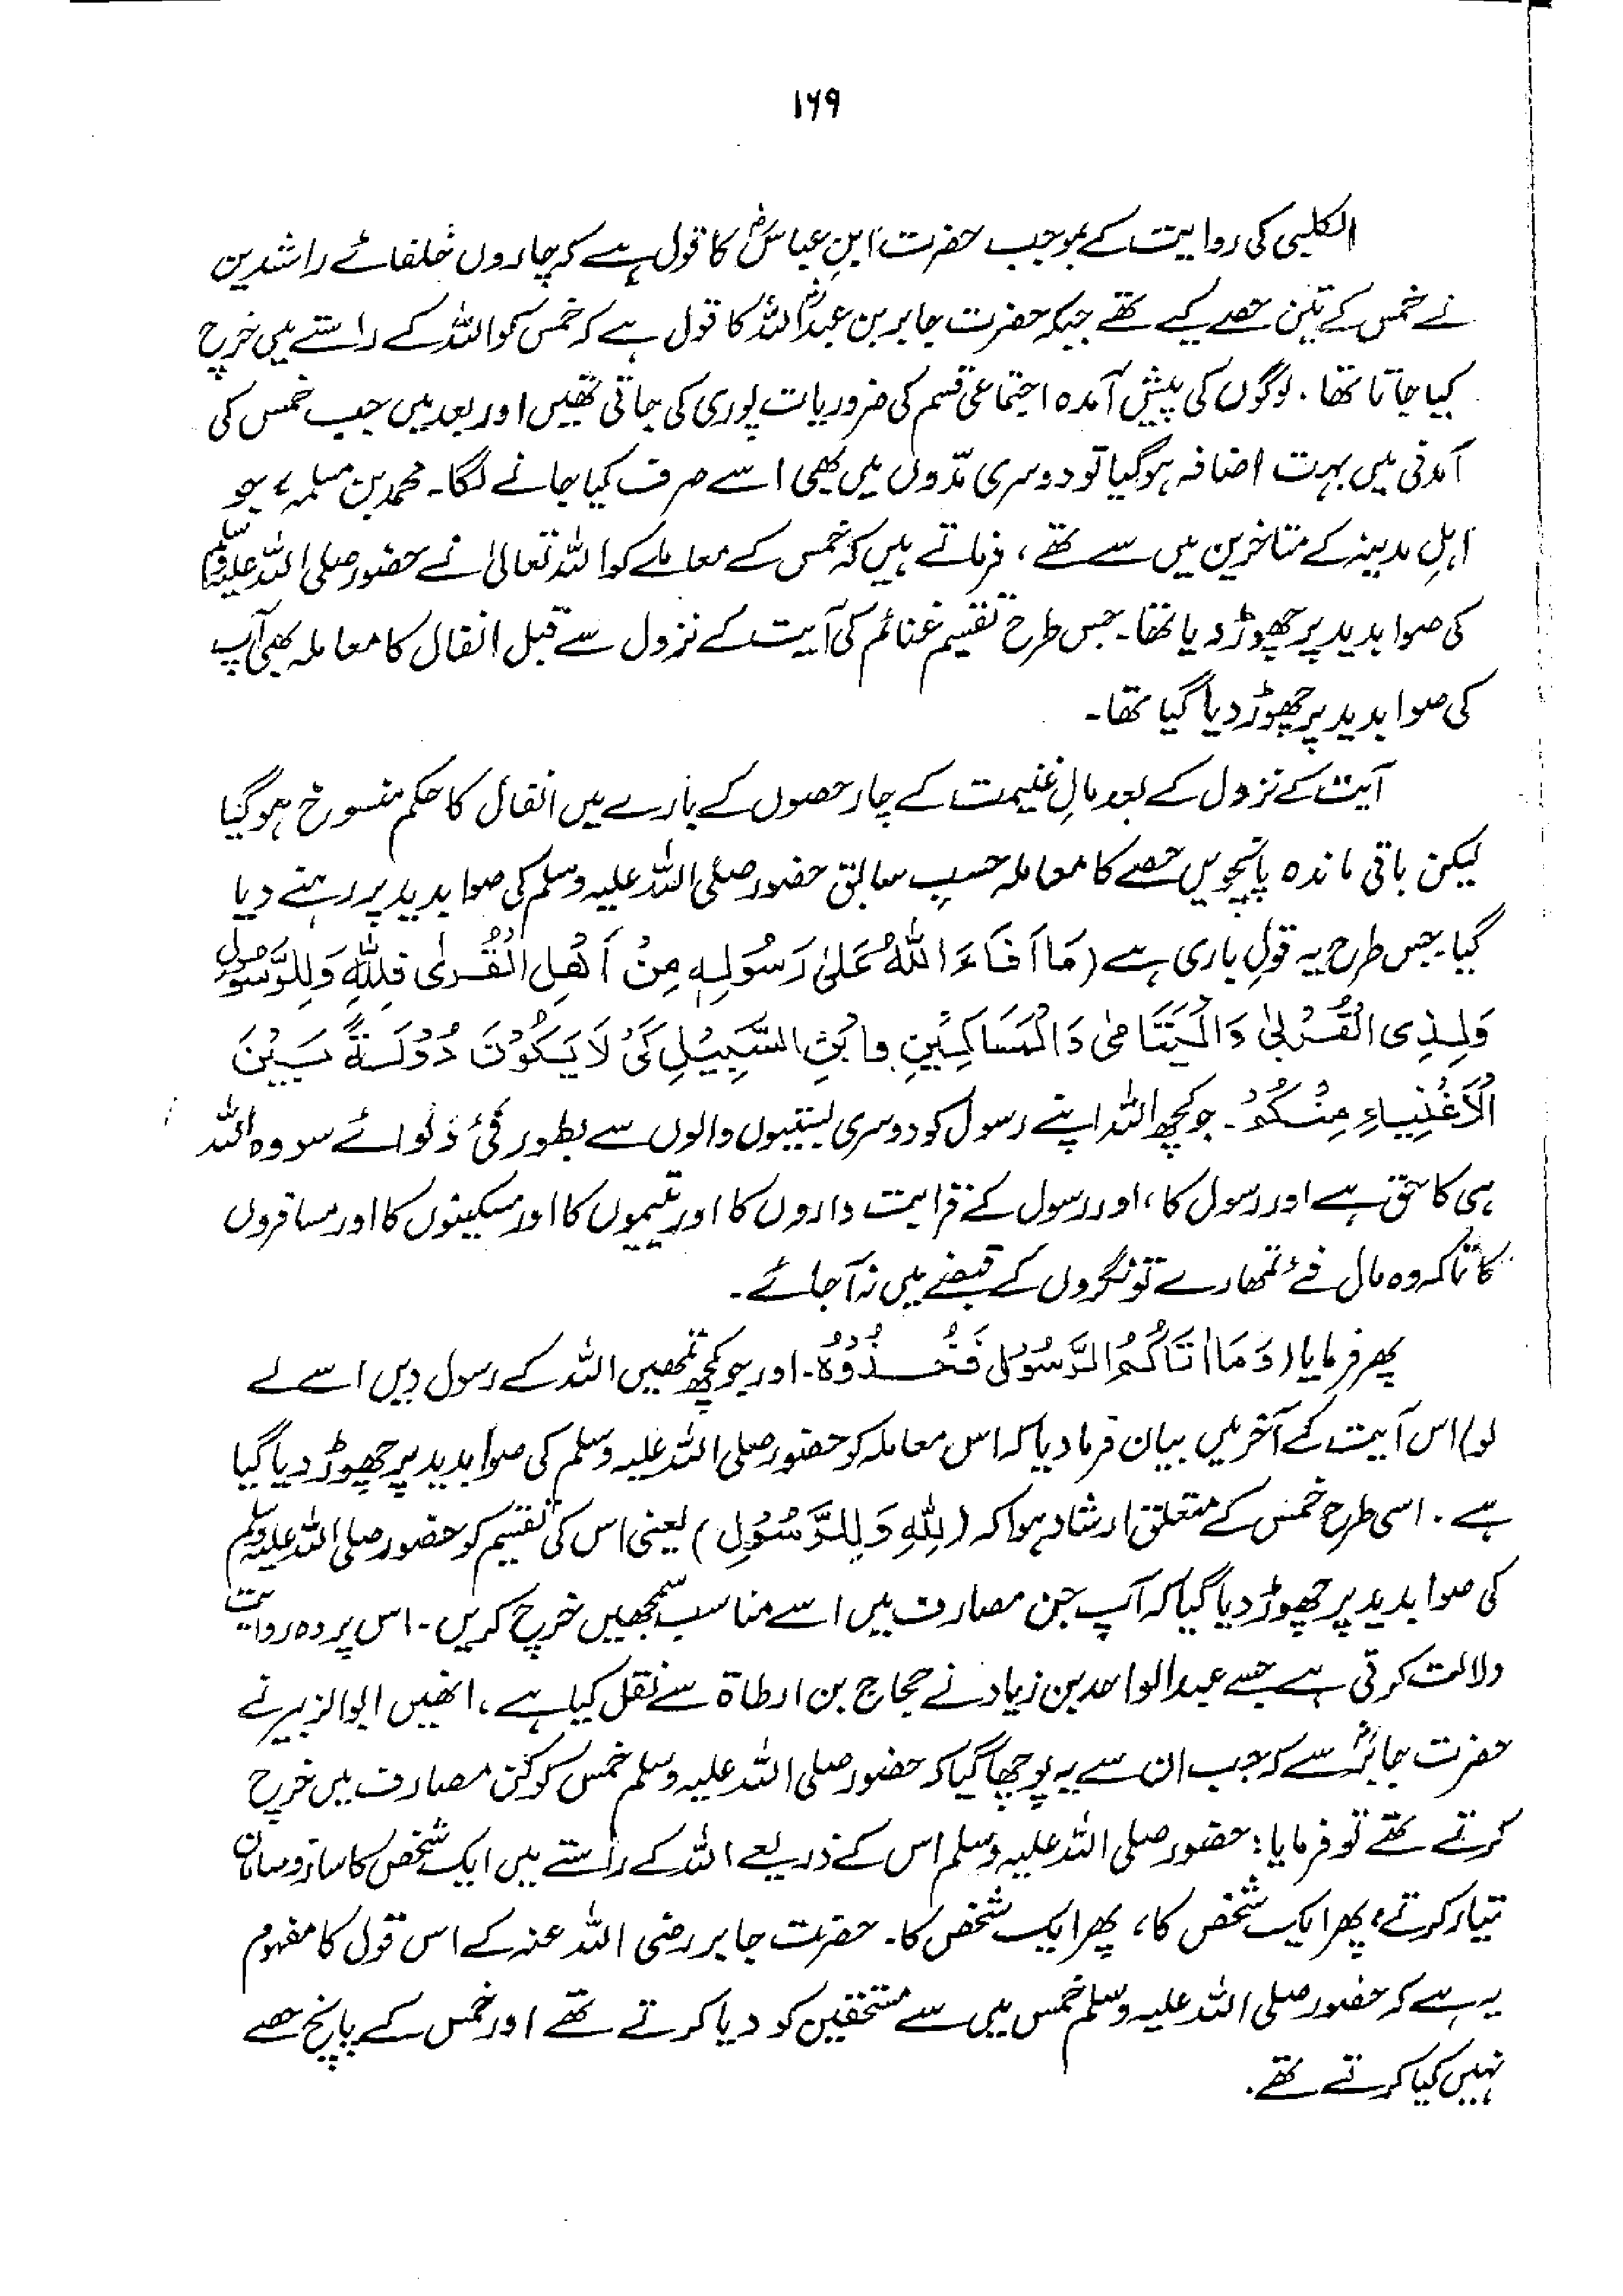 ۱۶۹
الکلبی کی روایت کے بموجب حضرت ابنِ عباسؓ کا قول ہے کہ چاروں خلفائے راشدین
نے خمس کے تین حصے کیے تھے جبکہ حضرت جابر بن عبداللہؓ کا قول ہے کہ خمس کو اللہ کے راستے میں خرچ
کیا جاتا تھا۔ لوگوں کی پیش آمدہ اجتماعی قسم کی ضروریات پوری کی جاتی تھیں اور بعد میں جب خمس کی
آمدنی میں بہت اضافہ ہوگیا تو دوسری مدّوں میں بھی اسے صرف کیا جانے لگا۔ محمد بن مسلمہ، جو
اہلِ مدینہ کے متاخرین میں سے تھے، فرماتے ہیں کہ خمس کے معاملے کو اللہ تعالیٰ نے حضور صلی اللہ علیہ وسلم
کی صوابدید پر چھوڑ دیا تھا۔ جس طرح تقسیم غنائم کی آیت کے نزول سے قبل انفال کا معاملہ بھی آپ
کی صوابدید پر چھوڑ دیا گیا تھا۔
آیت کے نزول کے بعد مالِ غنیمت کے چار حصوں کے بارے میں انفال کا حکم منسوخ ہو گیا
لیکن باقی ماندہ پانچویں حصے کا معاملہ حسبِ سابق حضور صلی اللہ علیہ وسلم کی صوابدید پر رہنے دیا
گیا۔ جس طرح یہ قولِ باری ہے (مَا اَفَاءَ اللّٰهُ عَلٰی رَسُوْلِهٖ مِنْ اَهْلِ الْقُرٰی فَلِلّٰهِ وَلِلرَّسُوْلِ
وَلِذِی الْقُرْبٰی وَالْیَتَامٰی وَالْمَسَاکِیْنِ وابْنِ السَّبِیْلِ کَیْ لَا یَکُوْنَ دُوْلَةً بَیْنَ
الْاَغْنِیَاءِ مِنْکُمْ۔ جو کچھ اللہ اپنے رسول کو دوسری بستیوں والوں سے بطور فیٔ دلوائے سو وہ اللہ
ہی کا حق ہے اور رسول کا، اور رسول کے قرابت داروں کا اور یتیموں کا اور مسکینوں کا اور مسافروں
کا تاکہ وہ مال فئے تمھارے تونگروں کے قبضے میں نہ آ جائے۔
پھر فرمایا (وَمَا اٰتَاکُمُ الرَّسُوْلُ فَخُذُوْهُ۔ اور جو کچھ تمھیں اللہ کے رسول دیں اسے لے
لو) اس آیت کے آخر میں بیان فرما دیا کہ اس معاملہ کو حضور صلی اللہ علیہ وسلم کی صوابدید پر چھوڑ دیا گیا
ہے۔ اسی طرح خمس کے متعلق ارشاد ہوا کہ (لِلّٰهِ وَلِلرَّسُوْلِ) یعنی اس کی تقسیم کو حضور صلی اللہ علیہ وسلم
کی صوابدید پر چھوڑ دیا گیا کہ آپ جن مصارف میں اسے مناسب سمجھیں خرچ کریں۔ اس پر وہ روایت
دلالت کرتی ہے جسے عبدالواحد بن زیاد نے حجاج بن ارطاۃ سے نقل کیا ہے، انھیں ابوالزبیر نے
حضرت جابرؓ سے کہ جب ان سے یہ پوچھا گیا کہ حضور صلی اللہ علیہ وسلم خمس کو کن مصارف میں خرچ
کرتے تھے تو فرمایا: حضور صلی اللہ علیہ وسلم اس کے ذریعے اللہ کے راستے میں ایک شخص کا ساز و سامان
تیار کرتے، پھر ایک شخص کا، پھر ایک شخص کا۔ حضرت جابر رضی اللہ عنہ کے اس قول کا مفہوم
یہ ہے کہ حضور صلی اللہ علیہ وسلم خمس میں سے مستحقین کو دیا کرتے تھے اور خمس کے پانچ حصے
نہیں کیا کرتے تھے۔